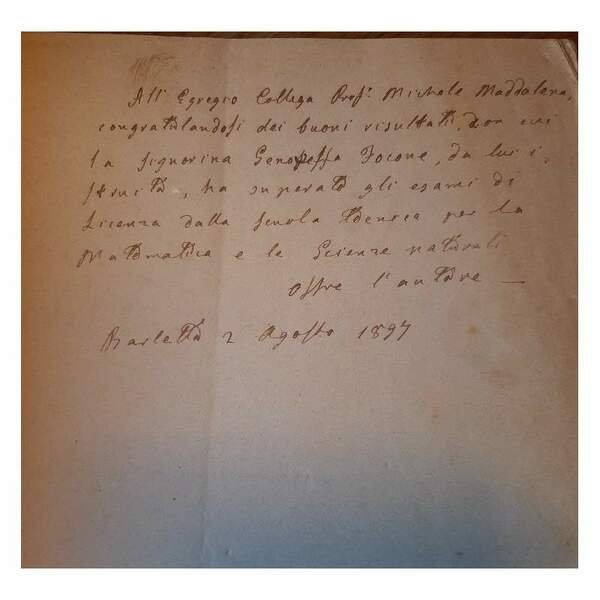 All' Egregio Collega Prof. Michele Maddalena,
congratulandosi dei buoni risultati, con cui
la signorina Genoveffa Focone, da lui i,
struita, ha superato gli esami di
Licenza dalla Scuola tecnica per la
Matematica e le Scienze naturali
Offre l'autore —
Barletta 2 Agosto 1897